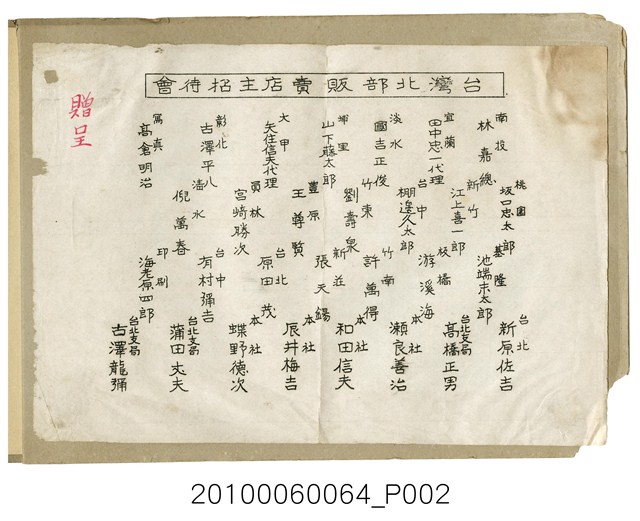 台灣北部販賣店主招待會
贈呈
南投
林嘉總
宜蘭
田中忠一代理
淡水
國吉正俊
埔里
山下藤太郎
大甲
矢住信夫代理
彰化
古澤平八
寫真
高倉明治
桃園
坂口忠太郎
新竹
江上喜一郎
台中
棚邊久太郎
竹東
劉壽泉
豐原
王尊賢
員林
宮崎勝次
清水
倪萬春
基隆
池端末太郎
板橋
游溪海
竹南
許萬得
新莊
張天錫
台北
原田茂
台中
有村彌吉
印刷
海老原四郎
台北
新原佐吉
台北支局
高橋正男
本社
瀨良善治
本社
和田信夫
本社
辰井梅吉
本社
蝶野德次
台北支局
蒲田丈夫
台北支局
古澤龍彌
20100060064_P002